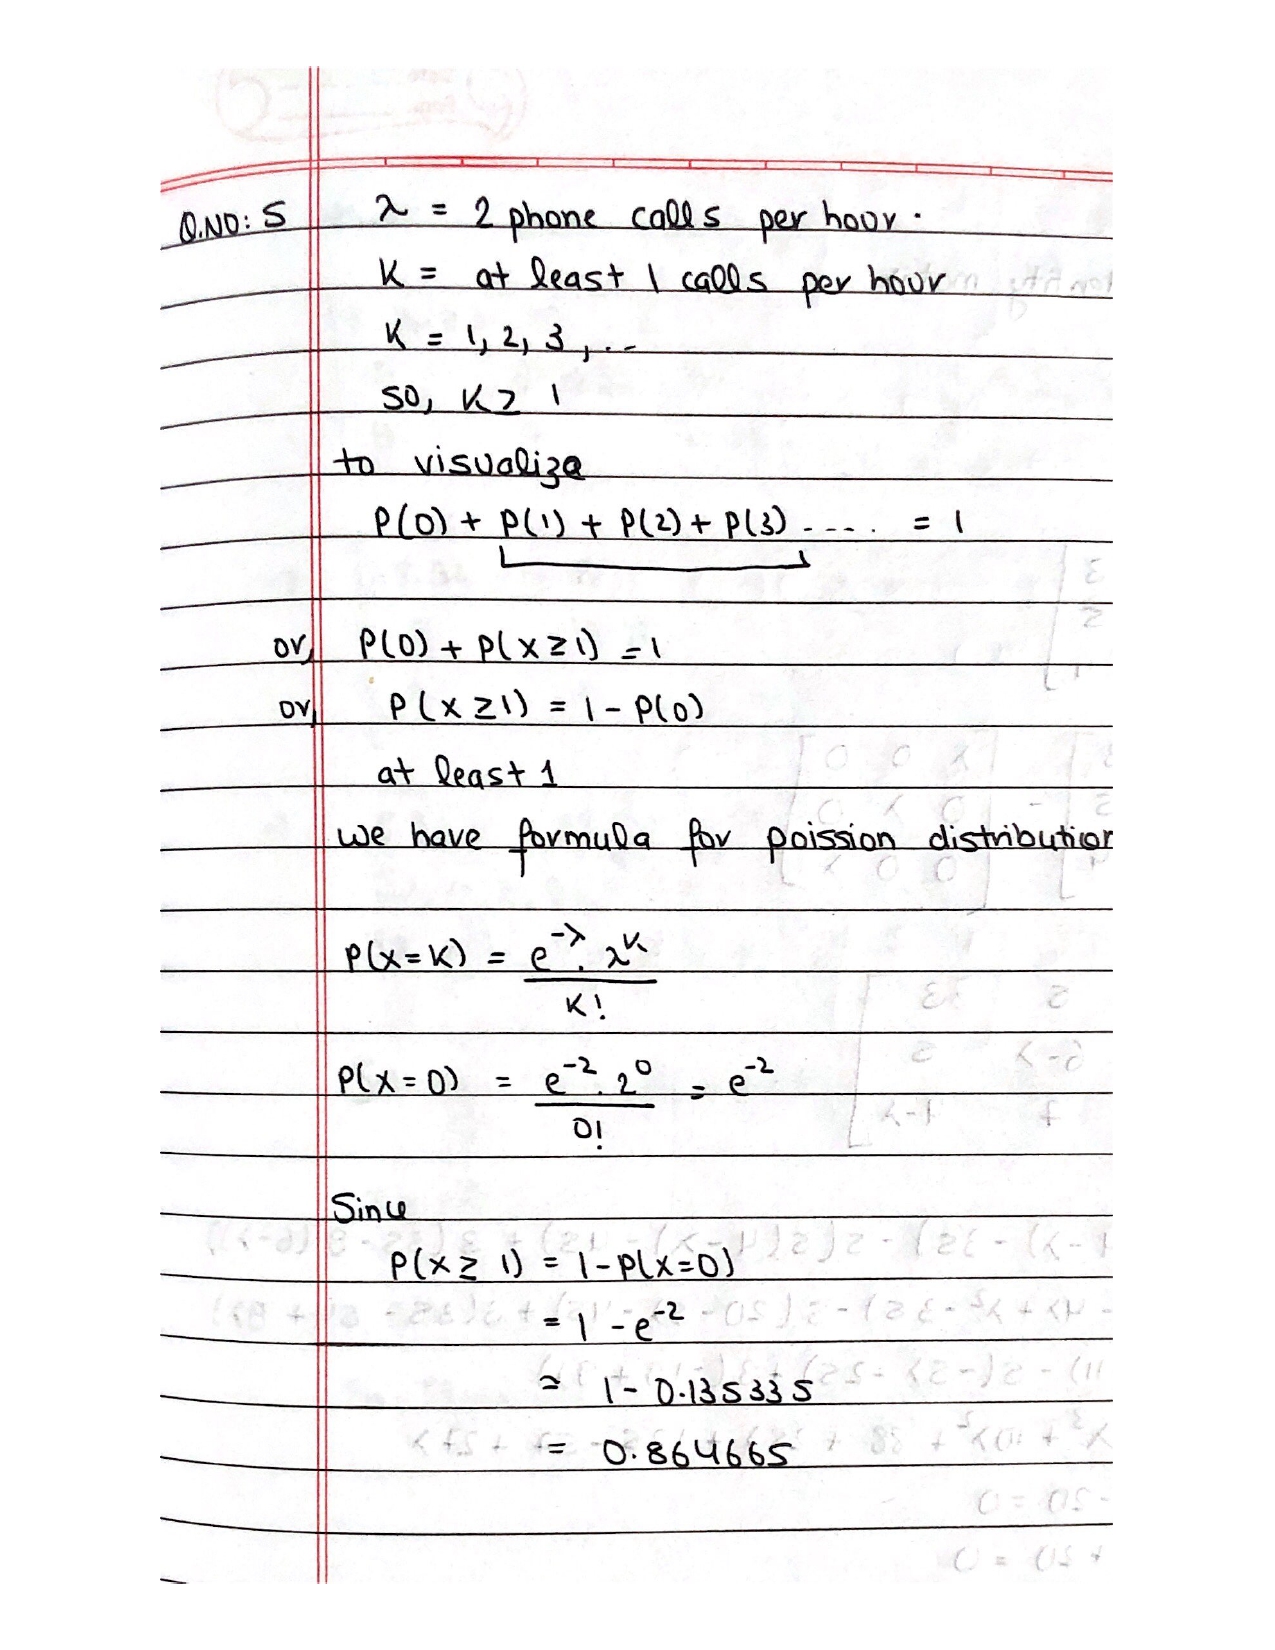 Q.NO: 5 λ = 2 phone calls per hour.
K = at least 1 calls per hour
K = 1, 2, 3, ...
so, K ≥ 1
to visualize
P(0) + P(1) + P(2) + P(3) ..... = 1
or, P(0) + P(X ≥ 1) = 1
or, P(X ≥ 1) = 1 - P(0)
at least 1
we have formula for poission distribution
P(X=K) = e^-λ . λ^K / K!
P(X=0) = e^-2 . 2^0 / 0! = e^-2
Since
P(X ≥ 1) = 1 - P(X=0)
= 1 - e^-2
≃ 1 - 0.135335
= 0.864665